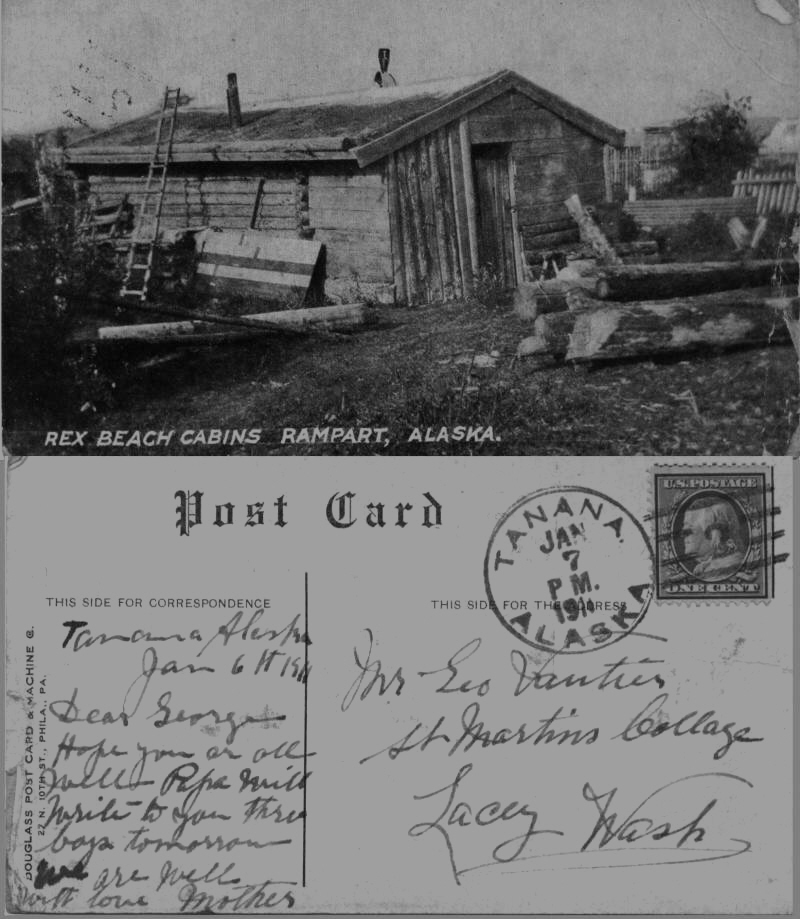 REX BEACH CABINS RAMPART, ALASKA.
Post Card
TANANA.
JAN
7
P M.
1911
ALASKA
U.S.POSTAGE
ONE CENT
THIS SIDE FOR CORRESPONDENCE
THIS SIDE FOR THE ADDRESS
DOUGLASS POST CARD & MACHINE CO.
27 N. 10TH ST., PHILA., PA.
Tanana Alaska
Jan 6th 1911
Dear George
Hope you ar all
well Papa will
write to you three
boys tomorrow
we are well
with love Mother
Mr Geo Vautier
St Martins Collage
Lacey Wash